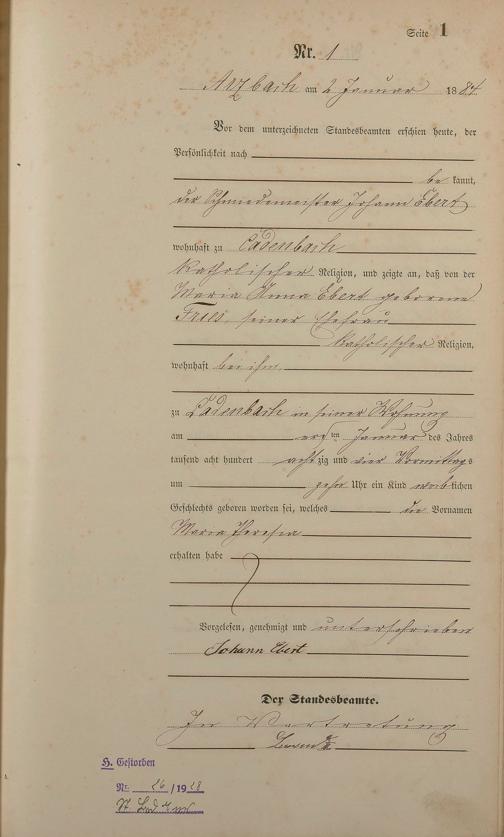 Seite 1
Nr. 1
Arzbach am 2 Januar 1884
Vor dem unterzeichneten Standesbeamten erschien heute, der
Persönlichkeit nach
be kannt,
der Schmiedemeister Johann Ebert
wohnhaft zu Cadenbach
katholischer Religion, und zeigte an, daß von der
Maria Anna Ebert geborene
Fries, seiner Ehefrau
katholischer Religion,
wohnhaft bei ihm
zu Cadenbach in seiner Wohnung
am ersten Januar des Jahres
tausend acht hundert achtzig und vier Vormittags
um zehn Uhr ein Kind weiblichen
Geschlechts geboren worden sei, welches die Vornamen
Maria Theresia
erhalten habe
Vorgelesen, genehmigt und unterschrieben
Johann Ebert
Der Standesbeamte.
In Vertretung
H. Gestorben
Nr. 26/1928
St. Bad Ems